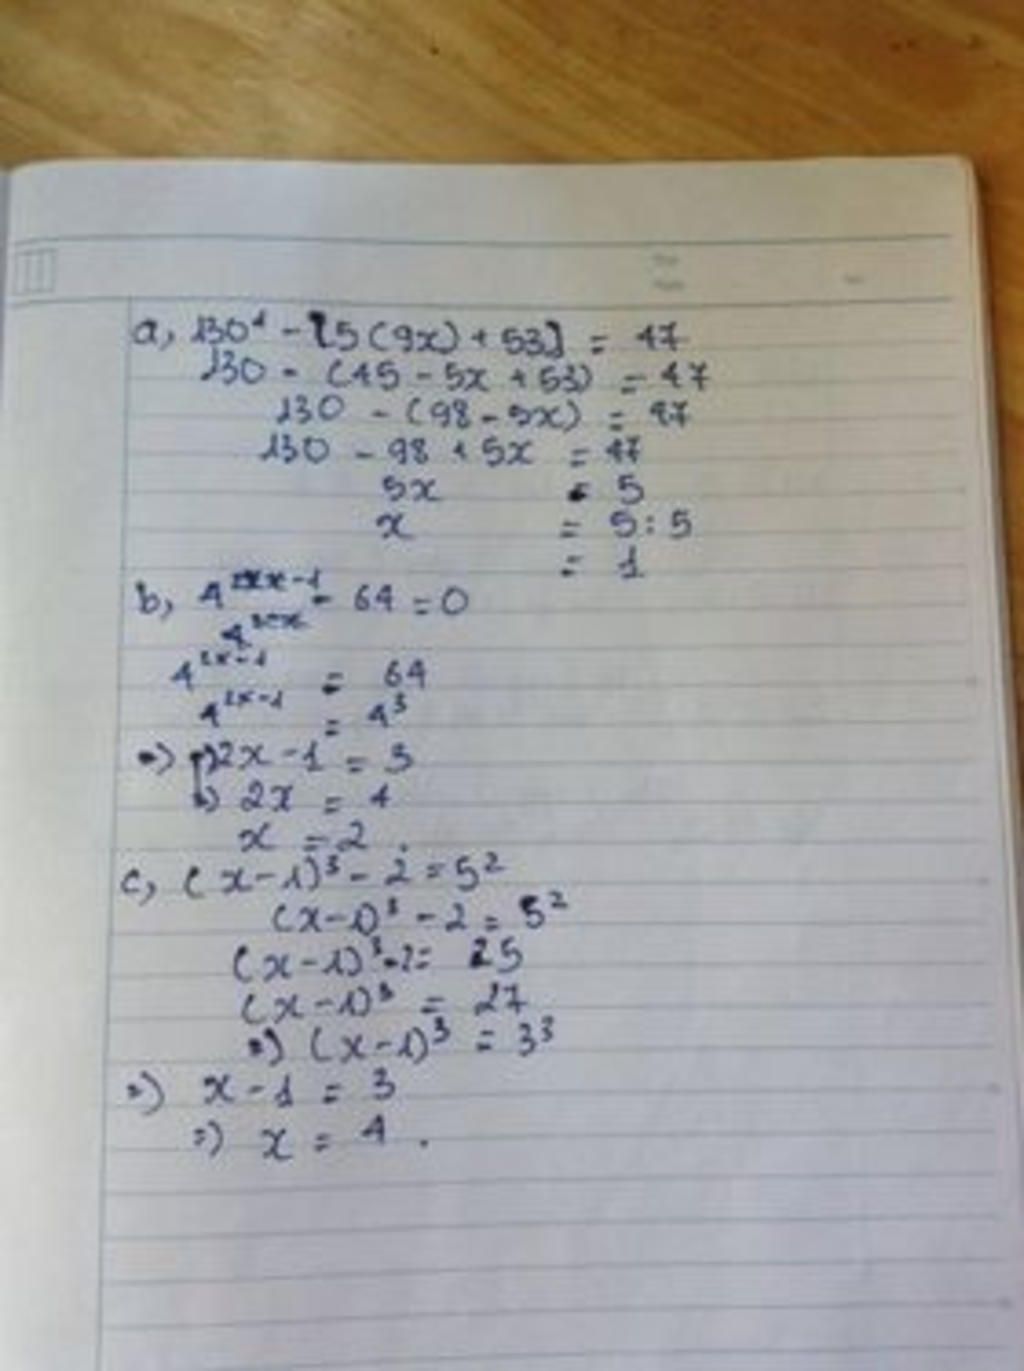 a, 130¹ - [5(9x) + 53] = 47
130 - (45 - 5x + 53) = 47
130 - (98 - 5x) = 47
130 - 98 + 5x = 47
5x = 5
x = 5 : 5
= 1
b, 4 - 64 = 0
4^{2x-1} = 64
4^{2x-1} = 4³
=) 2x - 1 = 3
=) 2x = 4
x = 2 .
c, (x - 1)³ - 2 = 5²
(x - 1)³ - 2 = 5²
(x - 1)³ - 2 = 25
(x - 1)³ = 27
=) (x - 1)³ = 3³
=) x - 1 = 3
=) x = 4 .